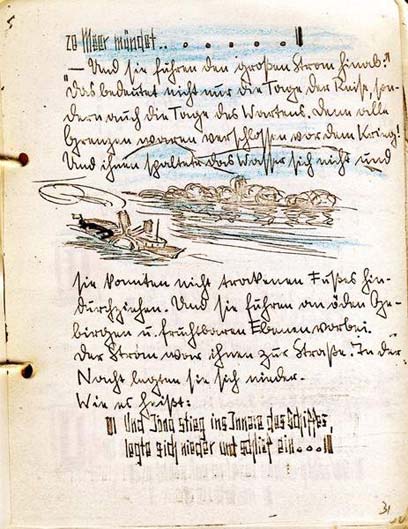 zu Meer mündet.. . . . . . "
— Und sie fuhren den großen Strom hinab:"
"Das bedeutet nicht nur die Tage der Reise, son-
dern auch die Tage des Wartens, denn alle
Grenzen waren verschlossen vor dem Krieg!
Und ihnen spaltete das Wasser sich nicht und
sie konnten nicht trockenen Fußes hin-
durchziehen. Und sie fuhren an öden Ge-
birgen u. fruchtbaren Ebenen vorbei.
Der Strom war ihnen zur Straße. In der
Nacht legten sie sich nieder.
Wie es heißt:
"Und Jona stieg ins Innere des Schiffes,
legte sich nieder und schlief ein..."
31